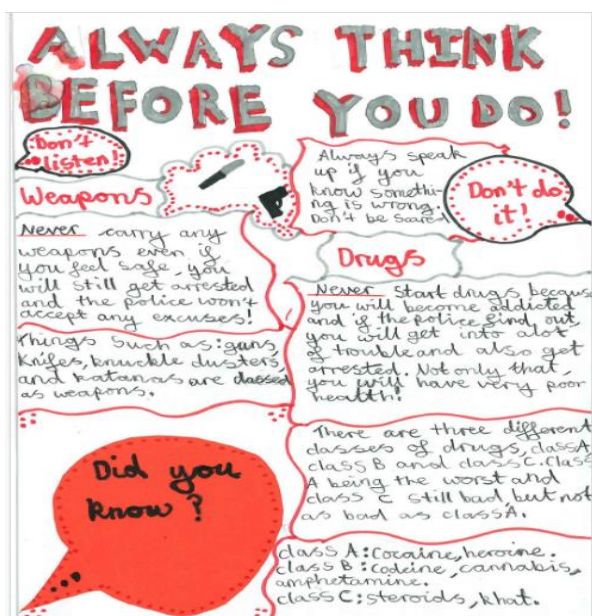 ALWAYS THINK
BEFORE YOU DO!
Don't
listen!
Weapons
Never carry any
weapons even if
you feel safe, you
will still get arrested
and the police won't
accept any excuses!
Things such as: guns,
knifes, knuckle dusters,
and katanas are classed
as weapons.
Did you
know?
Always speak
up if you
know somethi-
ng is wrong.
Don't be scared
Don't do
it!
Drugs
Never start drugs because
you will become addicted
and if the police find out,
you will get into alot
of trouble and also get
arrested. Not only that,
you will have very poor
health!
There are three different
classes of drugs, class A
class B and class C. Class
A being the worst and
class C still bad, but not
as bad as class A.
class A: Cocaine, heroine.
class B: codeine, cannabis,
amphetamine.
class C: steroids, khat.